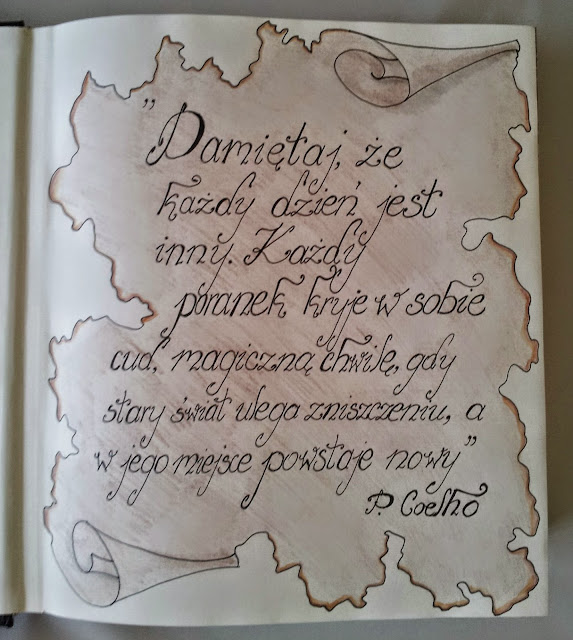 "Pamiętaj, że
każdy dzień jest
inny. Każdy
poranek kryje w sobie
cud, magiczną chwilę, gdy
stary świat ulega zniszczeniu, a
w jego miejsce powstaje nowy"
P. Coelho